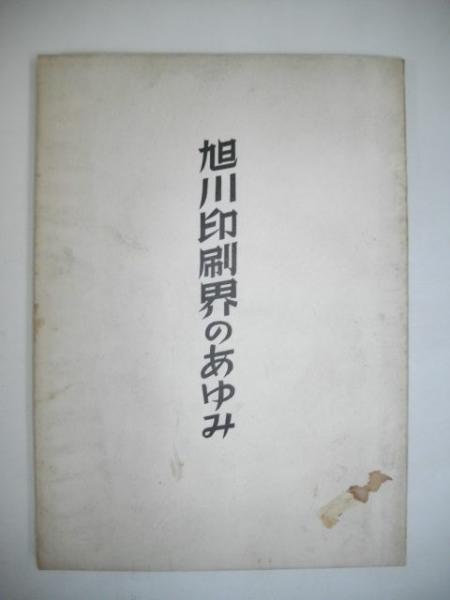 旭川印刷界のあゆみ